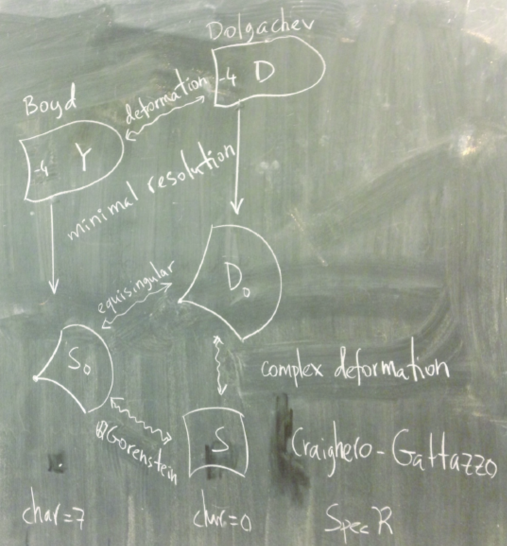 Dolgachev
-4 D
deformation
Boyd
-4 Y
minimal resolution
D₀
equisingular
S₀
complex deformation
QGorenstein
S
Craighero-Gattazzo
char=7
char=0
Spec R